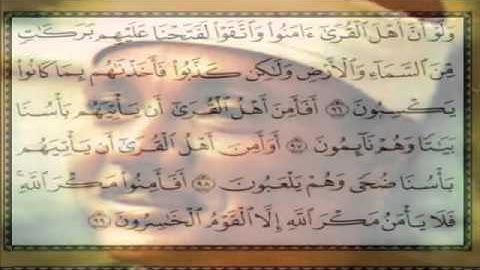 وَلَوْ أَنَّ أَهْلَ ٱلْقُرَىٰٓ ءَامَنُوا۟ وَٱتَّقَوْا۟ لَفَتَحْنَا عَلَيْهِم بَرَكَـٰتٍ
مِّنَ ٱلسَّمَآءِ وَٱلْأَرْضِ وَلَـٰكِن كَذَّبُوا۟ فَأَخَذْنَـٰهُم بِمَا كَانُوا۟
يَكْسِبُونَ ٩٦ أَفَأَمِنَ أَهْلُ ٱلْقُرَىٰٓ أَن يَأْتِيَهُم بَأْسُنَا
بَيَـٰتًا وَهُمْ نَآئِمُونَ ٩٧ أَوَأَمِنَ أَهْلُ ٱلْقُرَىٰٓ أَن يَأْتِيَهُم
بَأْسُنَا ضُحًى وَهُمْ يَلْعَبُونَ ٩٨ أَفَأَمِنُوا۟ مَكْرَ ٱللَّهِ ۚ
فَلَا يَأْمَنُ مَكْرَ ٱللَّهِ إِلَّا ٱلْقَوْمُ ٱلْخَـٰسِرُونَ ٩٩